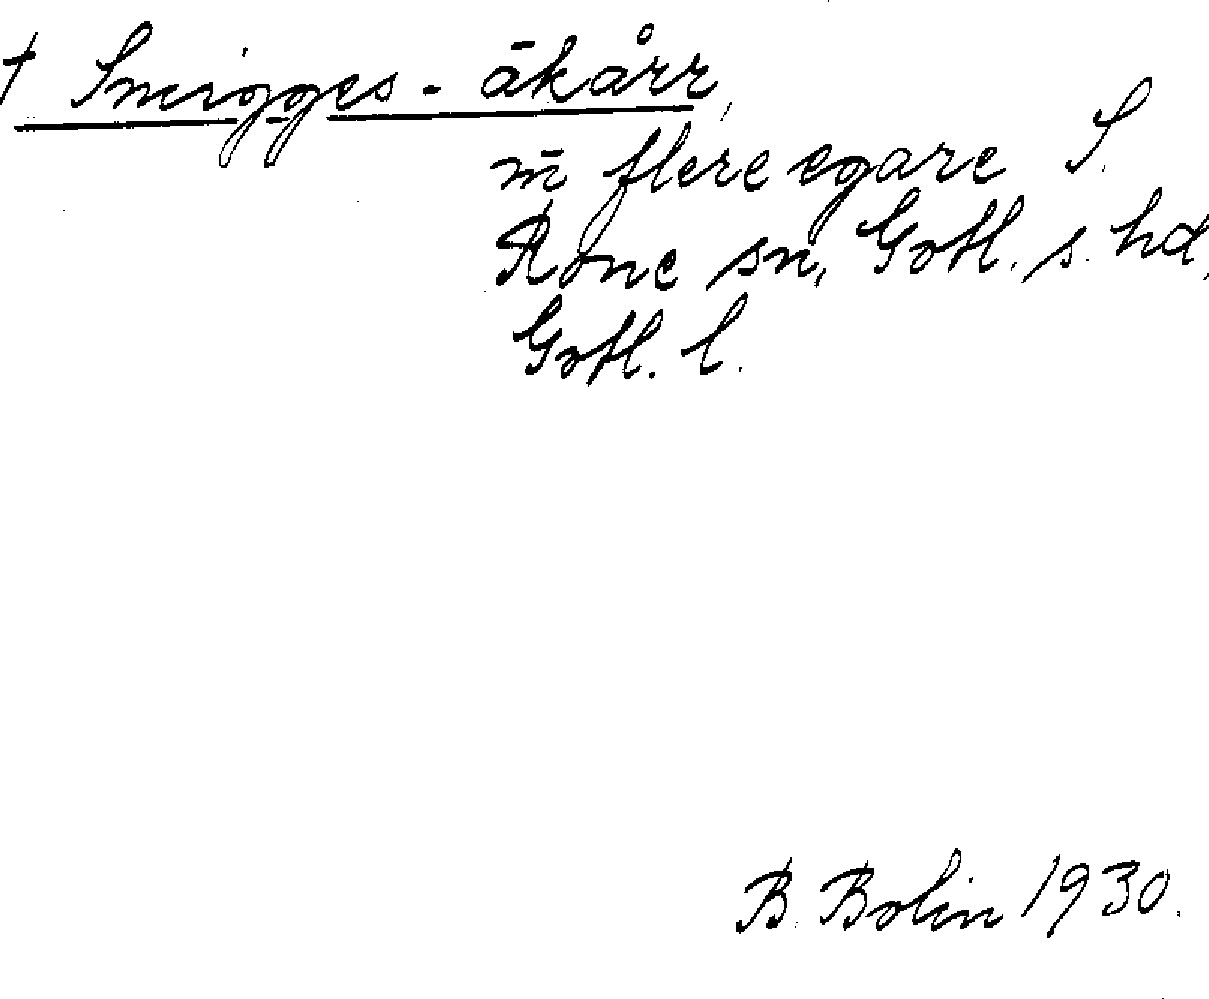 † Smigges - ākårr,
m̄ flere egare S.
Rone sn, Gotl. s. hd,
Gotl. l.
B. Bolin 1930.